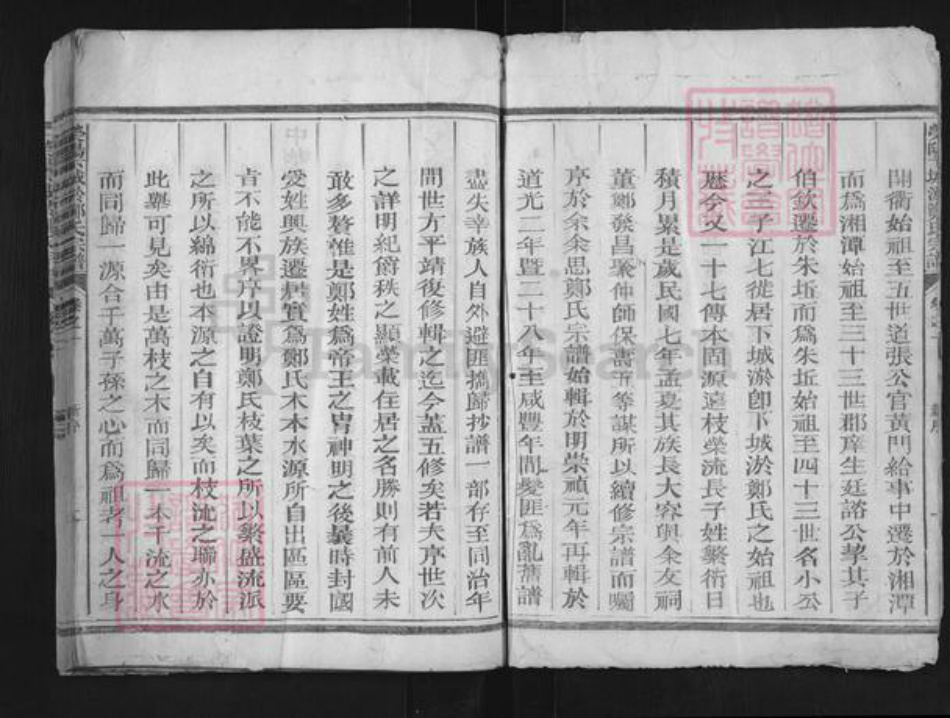 開衢始祖至五世道張公官黃門給事中遷於湘潭
而爲湘潭始祖至三十三世郡庠生廷諮公挈其子
伯欽遷於朱坵而爲朱坵始祖至四十三世名小公
之三子江七徙居下城淤卽下城淤鄭氏之始祖也
歷今又一十七傳本固源遠枝榮流長子姓繁衍日
積月累是歲民國七年孟夏其族長大容與余友祠
董鄭發昌聚仲師保壽五等謀所以續修宗譜而囑
序於余余思鄭氏宗譜始輯於明崇禎元年再輯於
道光二年暨二十八年至咸豐年間髮匪爲亂舊譜
盡失幸族人自外避匪攜歸抄譜一部存至同治年
間世方平靖復修輯之迄今蓋五修矣若夫序世次
之詳明紀爵秩之顯榮載住居之名勝則有前人未
敢多贅惟是鄭姓爲帝王之冑神明之後曩時封國
受姓興族遷居實爲鄭氏木本水源所自出區區要
旨不能不畧序以證明鄭氏枝葉之所以繁盛流派
之所以綿衍也本源之自有以矣而枝流之聯亦於
此舉可見矣由是萬枝之木而同歸一本千流之水
而同歸一源合千萬子孫之心而爲祖考一人之身
FamilySearch